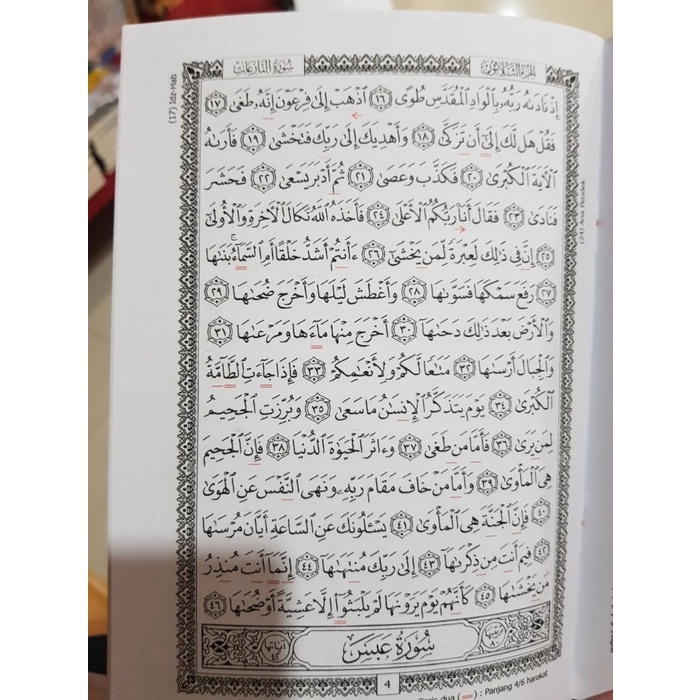 سُورَةُ النَّازِعَاتِ
الجُزْءُ الثَّلَاثُونَ
إِذْ نَادَىٰهُ رَبُّهُۥ بِٱلْوَادِ ٱلْمُقَدَّسِ طُوًى ١٦ ٱذْهَبْ إِلَىٰ فِرْعَوْنَ إِنَّهُۥ طَغَىٰ ١٧
فَقُلْ هَل لَّكَ إِلَىٰٓ أَن تَزَكَّىٰ ١٨ وَأَهْدِيَكَ إِلَىٰ رَبِّكَ فَتَخْشَىٰ ١٩ فَأَرَىٰهُ
ٱلْـَٔايَةَ ٱلْكُبْرَىٰ ٢٠ فَكَذَّبَ وَعَصَىٰ ٢١ ثُمَّ أَدْبَرَ يَسْعَىٰ ٢٢ فَحَشَرَ
فَنَادَىٰ ٢٣ فَقَالَ أَنَا۠ رَبُّكُمُ ٱلْأَعْلَىٰ ٢٤ فَأَخَذَهُ ٱللَّهُ نَكَالَ ٱلْـَٔاخِرَةِ وَٱلْأُولَىٰٓ
٢٥ إِنَّ فِى ذَٰلِكَ لَعِبْرَةً لِّمَن يَخْشَىٰٓ ٢٦ ءَأَنتُمْ أَشَدُّ خَلْقًا أَمِ ٱلسَّمَآءُ ۚ بَنَىٰهَا
٢٧ رَفَعَ سَمْكَهَا فَسَوَّىٰهَا ٢٨ وَأَغْطَشَ لَيْلَهَا وَأَخْرَجَ ضُحَىٰهَا ٢٩
وَٱلْأَرْضَ بَعْدَ ذَٰلِكَ دَحَىٰهَآ ٣٠ أَخْرَجَ مِنْهَا مَآءَهَا وَمَرْعَىٰهَا ٣١
وَٱلْجِبَالَ أَرْسَىٰهَا ٣٢ مَتَٰعًا لَّكُمْ وَلِأَنْعَٰمِكُمْ ٣٣ فَإِذَا جَآءَتِ ٱلطَّآمَّةُ
ٱلْكُبْرَىٰ ٣٤ يَوْمَ يَتَذَكَّرُ ٱلْإِنسَٰنُ مَا سَعَىٰ ٣٥ وَبُرِّزَتِ ٱلْجَحِيمُ
لِمَن يَرَىٰ ٣٦ فَأَمَّا مَن طَغَىٰ ٣٧ وَءَاثَرَ ٱلْحَيَوٰةَ ٱلدُّنْيَا ٣٨ فَإِنَّ ٱلْجَحِيمَ
هِىَ ٱلْمَأْوَىٰ ٣٩ وَأَمَّا مَنْ خَافَ مَقَامَ رَبِّهِۦ وَنَهَى ٱلنَّفْسَ عَنِ ٱلْهَوَىٰ
٤٠ فَإِنَّ ٱلْجَنَّةَ هِىَ ٱلْمَأْوَىٰ ٤١ يَسْـَٔلُونَكَ عَنِ ٱلسَّاعَةِ أَيَّانَ مُرْسَىٰهَا
٤٢ فِيمَ أَنتَ مِن ذِكْرَىٰهَآ ٤٣ إِلَىٰ رَبِّكَ مُنتَهَىٰهَآ ٤٤ إِنَّمَآ أَنتَ مُنذِرُ
مَن يَخْشَىٰهَا ٤٥ كَأَنَّهُمْ يَوْمَ يَرَوْنَهَا لَمْ يَلْبَثُوٓا۟ إِلَّا عَشِيَّةً أَوْ ضُحَىٰهَا ٤٦
سُورَةُ عَبَسَ
آيَاتُهَا ٤٢
4
(17) Idz-Hab
(24) Ana Pendek
Garis dua (=) : Panjang 4/6 harokat